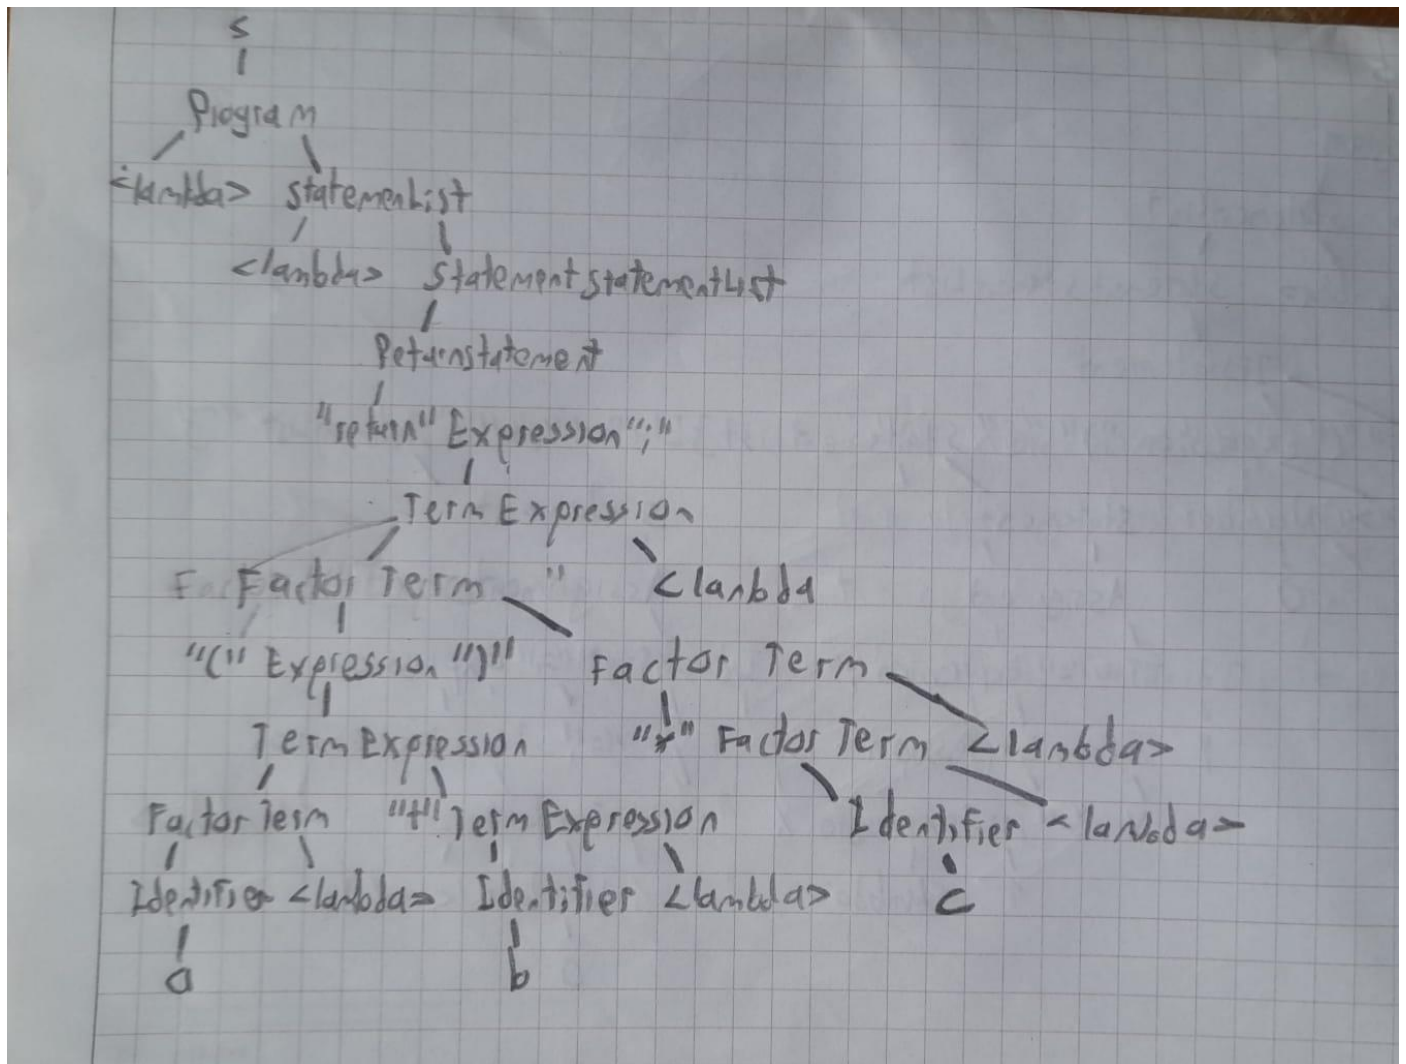 S
Program
<lambda> statemenList
<lambda> StatementstatementList
Returnstatement
"return" Expression ";"
Term Expression
Factor Term " <lambda
"(" Expression ")" Factor Term
Term Expression "*" Factor Term <lambda>
Factor Term "+" Term Expression Identifier <lambda>
Identifier <lambda> Identifier <lambda> c
a b